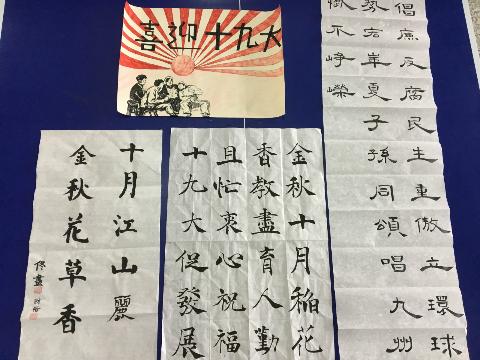 喜迎十九大
倡廉反腐民生重傲立環球
夏子孫同頌唱九州
不崢嶸
金秋十月稻花
香教盡育人勤
且忙衷心祝福
十九大促發展
十月江山麗
金秋花草香